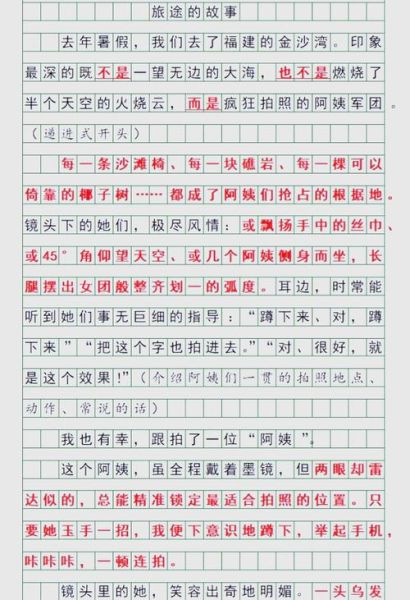 旅途的故事
去年暑假，我们去了福建的金沙湾。印象
最深的既不是一望无边的大海，也不是燃烧了
半个天空的火烧云，而是疯狂拍照的阿姨军团。
（递进式开头）
每一条沙滩椅、每一块礁岩、每一棵可以
倚靠的椰子树……都成了阿姨们抢占的根据地。
镜头下的她们，极尽风情：或飘扬手中的丝巾、
或45°角仰望天空、或几个阿姨侧身而坐，长
腿摆出女团般整齐划一的弧度。耳边，时常能
听到她们事无巨细的指导：“蹲下来、对，蹲
下来”“把这个字也拍进去。”“对、很好，就
是这个效果!”（介绍阿姨们一贯的拍照地点、
动作、常说的话）
我也有幸，跟拍了一位“阿姨”。
这个阿姨，虽全程戴着墨镜，但两眼却雷
达似的，总能精准锁定最适合拍照的位置。只
要她玉手一招，我便下意识地蹲下，举起手机，
咔咔咔，一顿连拍。
镜头里的她，笑容出奇地明媚。一头乌发